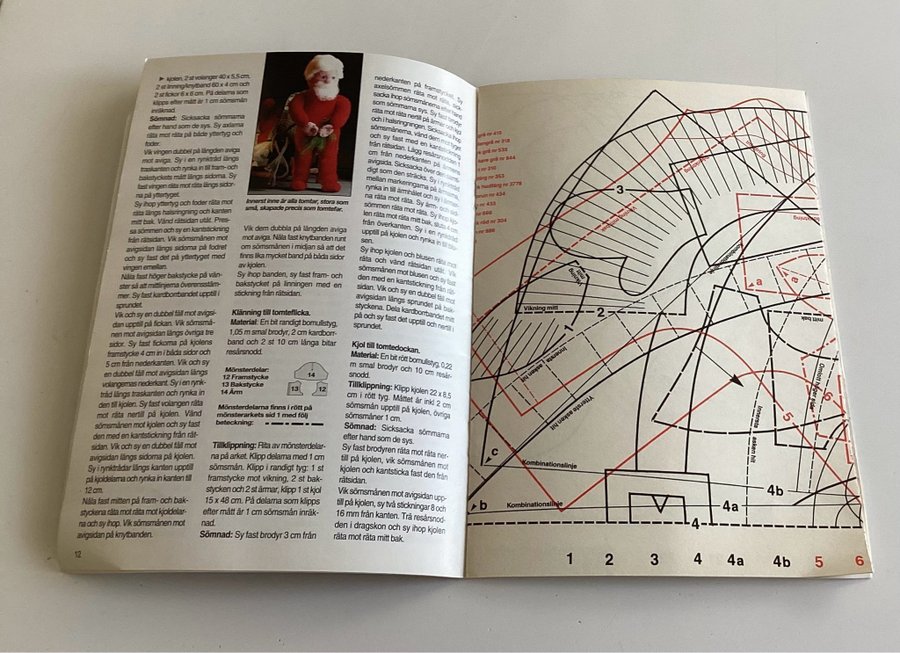 ► kjolen, 2 st volanger 40 x 5,5 cm,
2 st linning/knytband 60 x 4 cm och
2 st fickor 6 x 6 cm. På delarna som
klipps efter mått är 1 cm sömsmån
inräknad.
Sömnad: Sicksacka sömmarna
efter hand som de sys. Sy axlarna
räta mot räta på både yttertyg och
foder.
Vik vingen dubbla på längden aviga
mot aviga. Sy i en rynktråd längs
traskanten och rynka in till fram- och
bakstyckets mått längs sidorna. Sy
fast vingen räta mot räta längs sidor-
na på yttertyget.
Sy ihop yttertyg och foder räta mot
räta längs halsringning och kanten
mitt bak. Vänd rätsidan utåt. Pres-
sa sömmen och sy en kantstickning
från rätsidan. Vik sömsmånen mot
avigsidan längs sidorna på fodret
och sy fast det på yttertyget med
vingen emellan.
Nåla fast höger bakstycke på vän-
ster så att mittlinjerna överensstäm-
mer. Sy fast kardborrbandet upptill i
sprundet.
Vik och sy en dubbel fåll mot avigsi-
dan upptill på fickan. Vik sömsmå-
nen mot avigsidan längs övriga tre
sidor. Sy fast fickorna på kjolens
framstycke 4 cm in i båda sidor och
5 cm från nederkanten. Vik och sy
en dubbel fåll mot avigsidan längs
volangernas nederkant. Sy i en rynk-
tråd längs traskanten och rynka in
den till kjolen. Sy fast volangen räta
mot räta nertill på kjolen. Vänd
sömsmånerna mot kjolen och sy fast
den med en kantstickning från rät-
sidan. Vik och sy en dubbel fåll mot
avigsidan längs sidorna på kjolen.
Sy i rynktrådar längs kanten upptill
på kjoldelarna och rynka in kanten till
12 cm.
Nåla fast mitten på fram- och bak-
styckena räta mot räta mot kjoldelar-
na och sy ihop. Vik sömsmånen mot
avigsidan på knytbanden.
12
Innerst inne är alla tomtar, stora som
små, skapade precis som tomtefar.
Vik dem dubbla på längden aviga
mot aviga. Nåla fast knytbanden runt
om sömsmånen i midjan så att det
finns lika mycket band på båda sidor
av kjolen.
Sy ihop banden, sy fast fram- och
bakstycket på linningen med en
stickning från rätsidan.
Klänning till tomteflicka.
Material: En bit randigt bomullstyg,
1,05 m smal brodyr, 2 cm kardborr-
band och 2 st 10 cm långa bitar
resårsnodd.
Mönsterdelar:
12 Framstycke
13 Bakstycke
14 Ärm
14
13
12
Mönsterdelarna finns i rött på
mönsterarkets sid 1 med följ
beteckning:
Tillklippning: Rita av mönsterdelar-
na på arket. Klipp delarna med 1 cm
sömsmån. Klipp i randigt tyg: 1 st
framstycke mot vikning, 2 st bak-
stycken och 2 st ärmar, klipp 1 st kjol
15 x 48 cm. På delarna som klipps
efter mått är 1 cm sömsmån inräk-
nad.
Sömnad: Sy fast brodyr 3 cm från
nederkanten på framstycket. Sy
axelsömmen räta mot räta, sick-
sacka ihop sömsmånerna efter hand
som sömmarna sys. Sy fast brodyr
räta mot räta nertill på ärmar och kjol
och i halsringningen. Sicksacka ihop
sömsmånerna, vänd dem mot tyget
och sy fast med en kantstickning
från rätsidan. Lägg resårsnodden 1
cm från nederkanten på ärmens
avigsida. Sicksacka över den sam-
digt som den sträcks. Sy i rynktråd
mellan markeringarna på ärmarna,
rynka in mot ärmhålet och sy i ärmar-
na räta mot räta. Sy ärm- och sid-
sömmen räta mot räta. Sy ihop kjo-
len räta mot räta mitt bak, sluta 4 cm
från överkanten. Sy i en rynktråd
upptill på kjolen och rynka in till blu-
sen.
Sy ihop kjolen och blusen räta mot
räta och vänd rätsidan utåt. Vik
sömsmånen mot blusen och sy fast
den med en kantstickning från rätsi-
dan. Vik och sy en dubbel fåll mot
avigsidan längs sprundet på bak-
styckena. Dela kardborrbandet mitt
på och sy fast det upptill och nertill i
sprundet.
Kjol till tomtedockan.
Material: En bit rött bomullstyg, 0,22
m smal brodyr och 10 cm resår-
snodd.
Tillklippning: Klipp kjolen 22 x 8,5
cm i rött tyg. Måttet är inkl 2 cm
sömsmån upptill på kjolen, övriga
sömsmåner 1 cm.
Sömnad: Sicksacka sömmarna
efter hand som de sys.
Sy fast brodyren räta mot räta ner-
till på kjolen, vik sömsmånen mot
kjolen och kantsticka fast den från
rätsidan.
Vik sömsmånen mot avigsidan upp-
till på kjolen, sy två stickningar 8 och
16 mm från kanten. Trä resårsnod-
den i dragskon och sy ihop kjolen
räta mot räta mitt bak.
3
Vikning mitt
2
1
Vikning mitt fram
Innersta asken hit
Yttersta asken hit
Kombinationslinje
mitt bak
a
a
5
6
c
Kombinationslinje
b
Kombinationslinje
Innersta asken hit
4b
4a
4
1 2 3 4 4a 4b 5 6